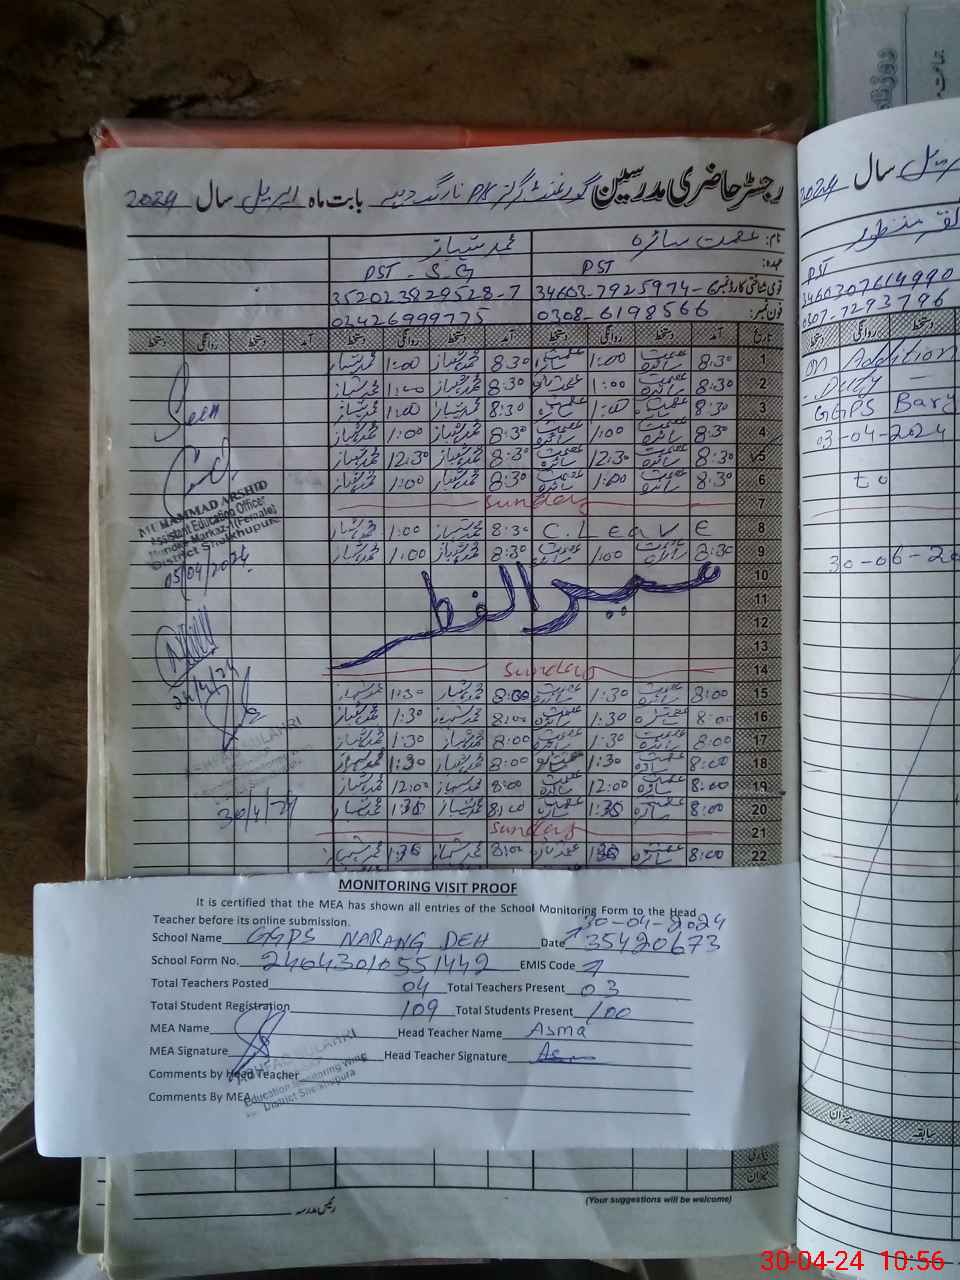 رجسٹر حاضری مدرسین گورنمنٹ گرلز P/S نارنگ ڈیہہ بابت ماہ اپریل سال 2024
نام: عصمت سائرہ محمد شہباز
عہدہ: PST PST - S.G
قومی شناختی کارڈ نمبر 34603-7925974-6 352023829528-7
فون نمبر: 0308-6198566 03426999775
تاریخ آمد دستخط روانگی دستخط آمد دستخط روانگی دستخط آمد دستخط روانگی دستخط
1 8:30 عصمت سائرہ 1:00 عصمت سائرہ 8:30 محمد شہباز 1:00 محمد شہباز
2 8:30 عصمت سائرہ 1:00 عصمت سائرہ 8:30 محمد شہباز 1:00 محمد شہباز
3 8:30 عصمت سائرہ 1:00 عصمت سائرہ 8:30 محمد شہباز 1:00 محمد شہباز
4 8:30 عصمت سائرہ 1:00 عصمت سائرہ 8:30 محمد شہباز 1:00 محمد شہباز
5 8:30 عصمت سائرہ 12:30 عصمت سائرہ 8:30 محمد شہباز 12:30 محمد شہباز
6 8:30 عصمت سائرہ 1:00 عصمت سائرہ 8:30 محمد شہباز 1:00 محمد شہباز
7 Sunday
8 C. Leave 8:30 محمد شہباز 1:00 محمد شہباز
9 8:30 عصمت سائرہ 1:00 عصمت سائرہ 8:30 محمد شہباز 1:00 محمد شہباز
10
11 عید الفطر
12
13
14 Sunday
15 8:00 عصمت سائرہ 1:30 عصمت سائرہ 8:00 محمد شہباز 1:30 محمد شہباز
16 8:00 عصمت سائرہ 1:30 عصمت سائرہ 8:00 محمد شہباز 1:30 محمد شہباز
17 8:00 عصمت سائرہ 1:30 عصمت سائرہ 8:00 محمد شہباز 1:30 محمد شہباز
18 8:00 عصمت سائرہ 1:30 عصمت سائرہ 8:00 محمد شہباز 1:30 محمد شہباز
19 8:00 عصمت سائرہ 12:00 عصمت سائرہ 8:00 محمد شہباز 12:00 محمد شہباز
20 8:00 عصمت سائرہ 1:30 عصمت سائرہ 8:00 محمد شہباز 1:30 محمد شہباز
21 Sunday
22 8:00 عصمت سائرہ 1:30 عصمت سائرہ 8:00 محمد شہباز 1:30 محمد شہباز
Seen
MUHAMMAD ARSHID
Assistant Education Officer
(Female)
District Sheikhupura
05/04/2024
24/4/24
30/4/24
MONITORING VISIT PROOF
It is certified that the MEA has shown all entries of the School Monitoring Form to the Head
Teacher before its online submission.
30-04-2024
School Name GGPS NARANG DEH Date 35420673
School Form No. 24043010551442 EMIS Code
Total Teachers Posted 04 Total Teachers Present 03
Total Student Registration 109 Total Students Present 100
MEA Name Head Teacher Name Asma
MEA Signature Head Teacher Signature
Comments by Head Teacher
Comments By MEA
Education Monitoring Wing
District Sheikhupura
میزان
رئیس مدرسہ
(Your suggestions will be welcome)
سال 2024
PST
3460307614990
0307-7293796
دستخط روانگی دستخط
on Addition
Duty
GGPS Bary
03-04-2024
to
30-06-20
میزان
سابقہ
30-04-24 10:56